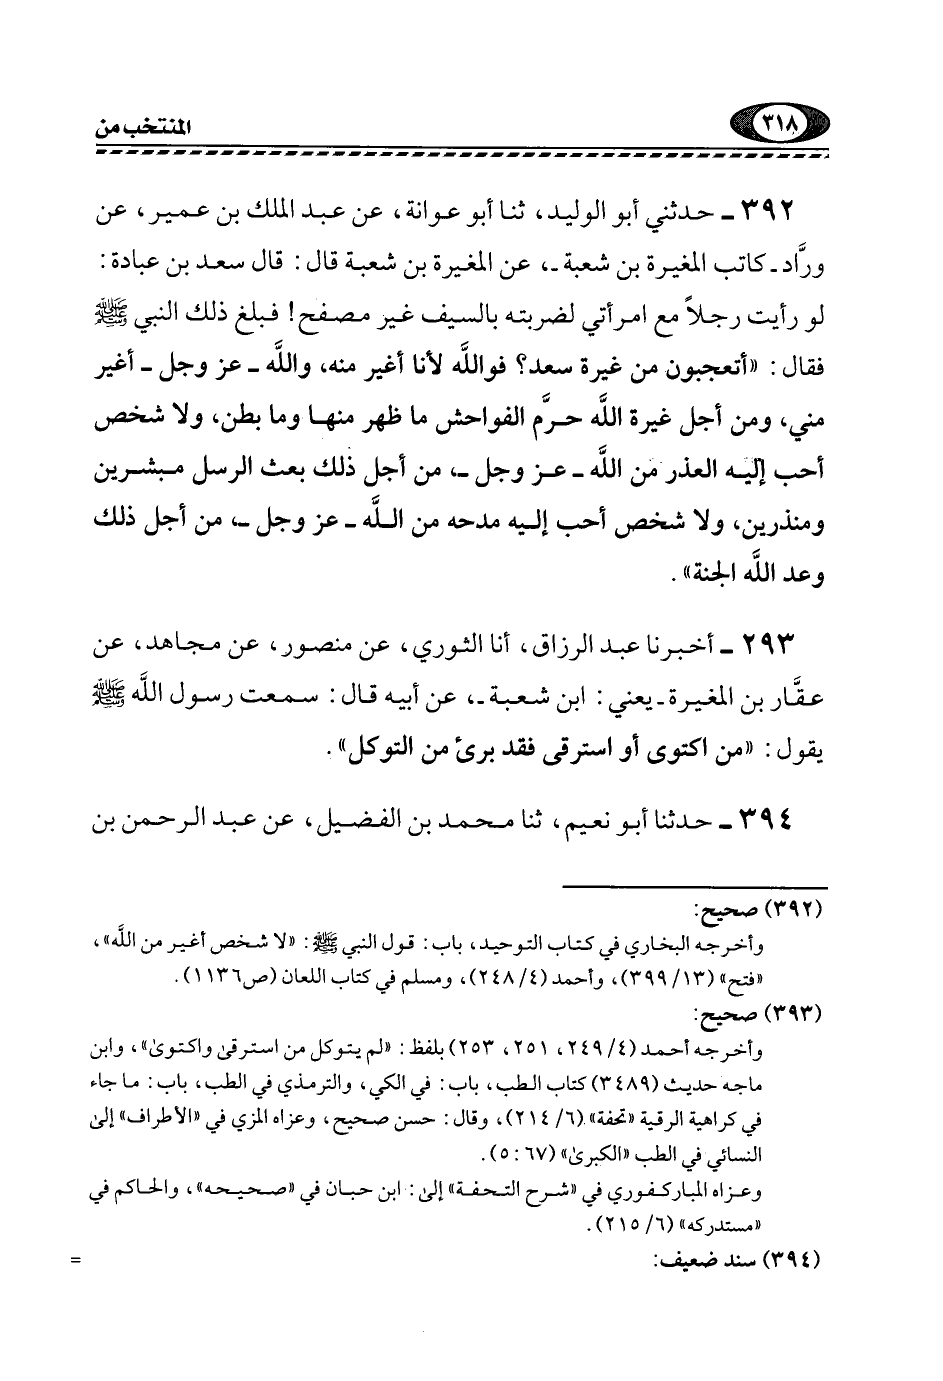 ٣١٨ المنتخب من
٣٩٢ ـ حدثني أبو الوليد، ثنا أبو عوانة، عن عبد الملك بن عمير، عن
ورَّاد ـ كاتب المغيرة بن شعبة ـ، عن المغيرة بن شعبة قال: قال سعد بن عبادة:
لو رأيت رجلاً مع امرأتي لضربته بالسيف غير مصفح! فبلغ ذلك النبي ﷺ
فقال: «أتعجبون من غيرة سعد؟ فواللَّه لأنا أغير منه، واللَّه ـ عز وجل ـ أغير
مني، ومن أجل غيرة اللَّه حرَّم الفواحش ما ظهر منها وما بطن، ولا شخص
أحب إليه العذر من اللَّه ـ عز وجل ـ، من أجل ذلك بعث الرسل مبشرين
ومنذرين، ولا شخص أحب إليه مدحه من اللَّه ـ عز وجل ـ، من أجل ذلك
وعد اللَّه الجنة».
٢٩٣ ـ أخبرنا عبد الرزاق، أنا الثوري، عن منصور، عن مجاهد، عن
عقَّار بن المغيرة ـ يعني: ابن شعبة ـ، عن أبيه قال: سمعت رسول اللَّه ﷺ
يقول: «من اكتوى أو استرقى فقد برئ من التوكل».
٣٩٤ ـ حدثنا أبو نعيم، ثنا محمد بن الفضيل، عن عبد الرحمن بن
(٣٩٢) صحيح:
وأخرجه البخاري في كتاب التوحيد، باب: قول النبي ﷺ: «لا شخص أغير من اللَّه»،
«فتح» (١٣/ ٣٩٩)، وأحمد (٤/ ٢٤٨)، ومسلم في كتاب اللعان (ص١١٣٦).
(٣٩٣) صحيح:
وأخرجه أحمد (٤/ ٢٤٩، ٢٥١، ٢٥٣) بلفظ: «لم يتوكل من استرقىٰ واكتوىٰ»، وابن
ماجه حديث (٣٤٨٩) كتاب الطب، باب: في الكي، والترمذي في الطب، باب: ما جاء
في كراهية الرقية «تحفة» (٦/ ٢١٤)، وقال: حسن صحيح، وعزاه المزي في «الأطراف» إلىٰ
النسائي في الطب «الكبرىٰ» (٦٧: ٥).
وعزاه المباركفوري في «شرح التحفة» إلىٰ: ابن حبان في «صحيحه»، والحاكم في
«مستدركه» (٦/ ٢١٥).
(٣٩٤) سند ضعيف: =